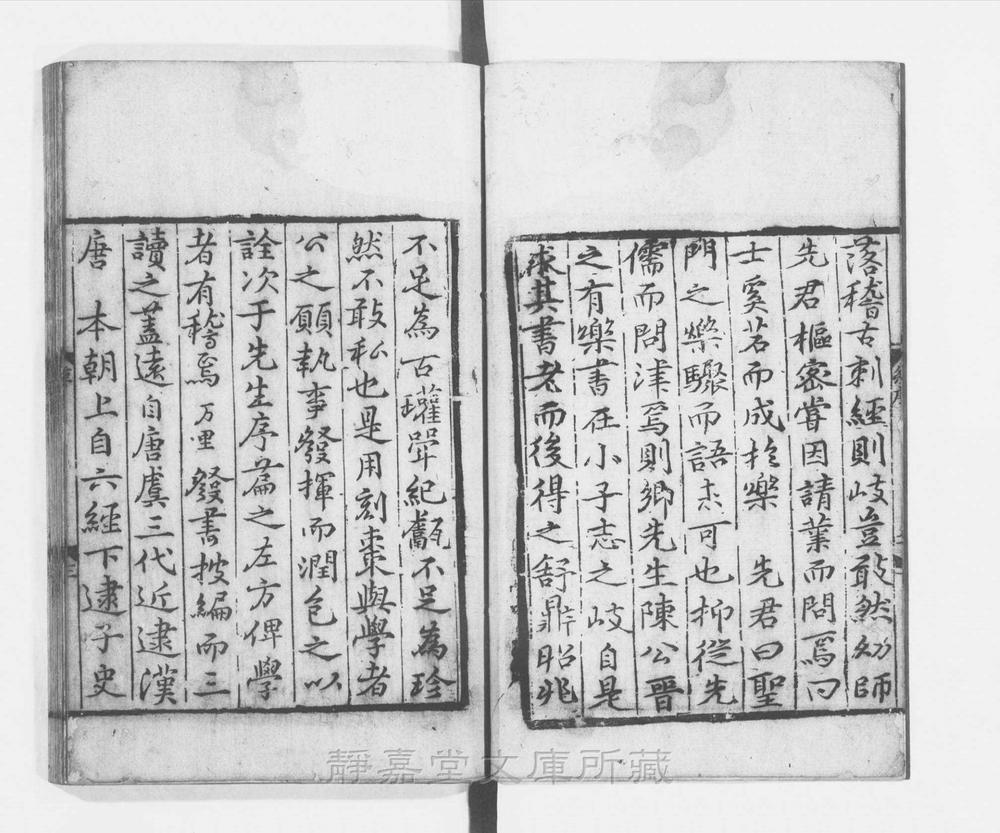 落稽古刺經則岐豈敢然幼師
先君樞密嘗因請業而問焉曰
士奚若而成於樂　先君曰聖
門之樂驟而語未可也抑從先
儒而問津焉則鄉先生陳公晉
之有樂書在小子志之岐自是
求其書老而後得之舒鼎昭兆
不足為古瓘斝紀甗不足為珍
然不敢私也是用刻棗與學者
公之願執事發揮而潤色之以
詮次于先生序篇之左方俾學
者有稽焉万里發書披編而三
讀之蓋遠自唐虞三代近逮漢
唐　本朝上自六經下逮子史
靜嘉堂文庫所藏